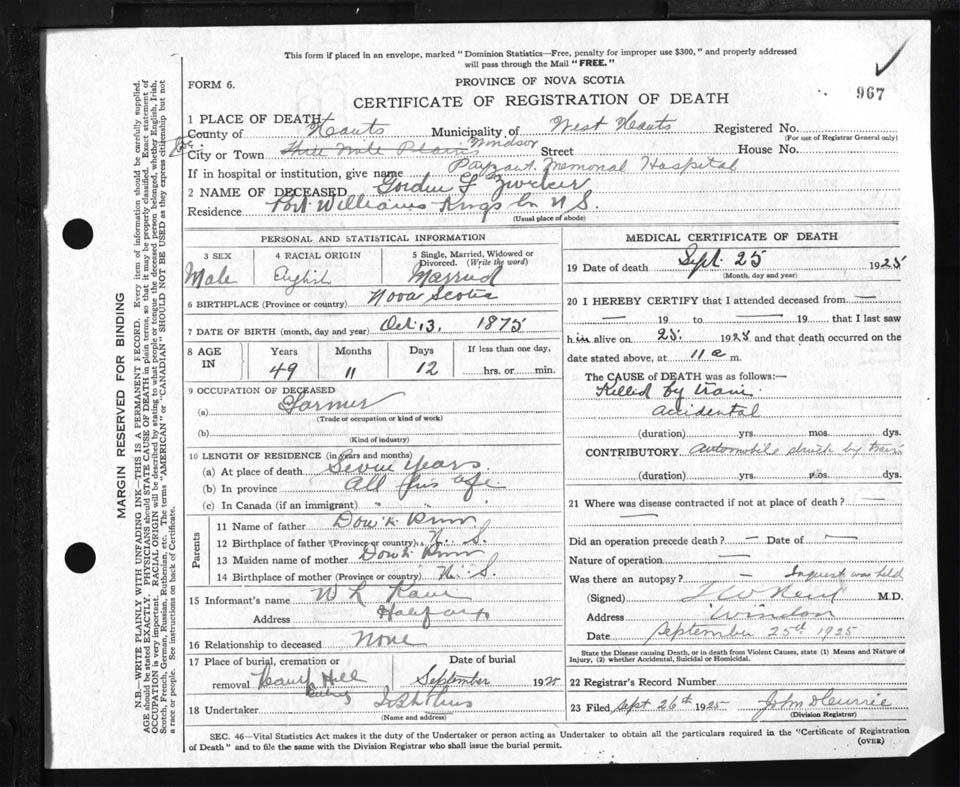 This form if placed in an envelope, marked "Dominion Statistics—Free, penalty for improper use $300," and properly addressed
will pass through the Mail "FREE."
FORM 6.
PROVINCE OF NOVA SCOTIA
967
CERTIFICATE OF REGISTRATION OF DEATH
1 PLACE OF DEATH
County of Hants Municipality of West Hants Registered No.
(For use of Registrar General only)
City or Town Three Mile Plains Windsor Street House No.
If in hospital or institution, give name Payzant Memorial Hospital
2 NAME OF DECEASED Gordon L Zwicker
Residence Port Williams Kings Co N S.
(Usual place of abode)
PERSONAL AND STATISTICAL INFORMATION
3 SEX 4 RACIAL ORIGIN 5 Single, Married, Widowed or Divorced. (Write the word)
Male English Married
6 BIRTHPLACE (Province or country) Nova Scotia
7 DATE OF BIRTH (month, day and year) Oct 13, 1875
8 AGE IN Years Months Days If less than one day,
49 11 12 hrs. or min.
9 OCCUPATION OF DECEASED
(a) Farmer
(Trade or occupation or kind of work)
(b)
(Kind of industry)
10 LENGTH OF RESIDENCE (in years and months)
(a) At place of death Seven Years.
(b) In province All his life
(c) In Canada (if an immigrant)
Parents
11 Name of father Don't Know
12 Birthplace of father (Province or country) N. S.
13 Maiden name of mother Don't Know
14 Birthplace of mother (Province or country) N. S.
15 Informant's name W L
Address Halifax
16 Relationship to deceased None
17 Place of burial, cremation or removal Hill Date of burial September 1925
18 Undertaker
(Name and address)
MEDICAL CERTIFICATE OF DEATH
19 Date of death Sept. 25 1925
(Month, day and year)
20 I HEREBY CERTIFY that I attended deceased from —
— 19 to — 19 , that I last saw
him alive on 25. 1925 and that death occurred on the
date stated above, at 11 a m.
The CAUSE of DEATH was as follows:—
Killed by train
accidental
(duration) yrs. mos. dys.
CONTRIBUTORY Automobile struck by train
(duration) yrs. mos. dys.
21 Where was disease contracted if not at place of death? —
Did an operation precede death? — Date of —
Nature of operation —
Was there an autopsy? — Inquest was held
(Signed) M.D.
Address Windsor
Date September 25th 1925
State the Disease causing Death, or in death from Violent Causes, state (1) Means and Nature of
Injury, (2) whether Accidental, Suicidal or Homicidal.
22 Registrar's Record Number
23 Filed Sept 26th 1925 John D Currie
(Division Registrar)
SEC. 46—Vital Statistics Act makes it duty of the Undertaker or person acting as Undertaker to obtain all the particulars required in the "Certificate of Registration
of Death" and to file the same with the Division Registrar who shall issue the burial permit.
(OVER)
MARGIN RESERVED FOR BINDING
N.B.—WRITE PLAINLY WITH UNFADING INK—THIS IS A PERMANENT RECORD. Every item of information should be carefully supplied.
AGE should be stated EXACTLY. PHYSICIANS should STATE CAUSE OF DEATH in plain terms, so that it may be properly classified. Exact statement of
OCCUPATION is very important. RACIAL ORIGIN will be described by stating to what people or tongue the deceased person belonged, whether English, Irish,
Scotch, French, German, Russian, Ruthenian, etc. The terms "AMERICAN" or "CANADIAN" SHOULD NOT BE USED as they express citizenship but not
a race or people. See instructions on back of Certificate.